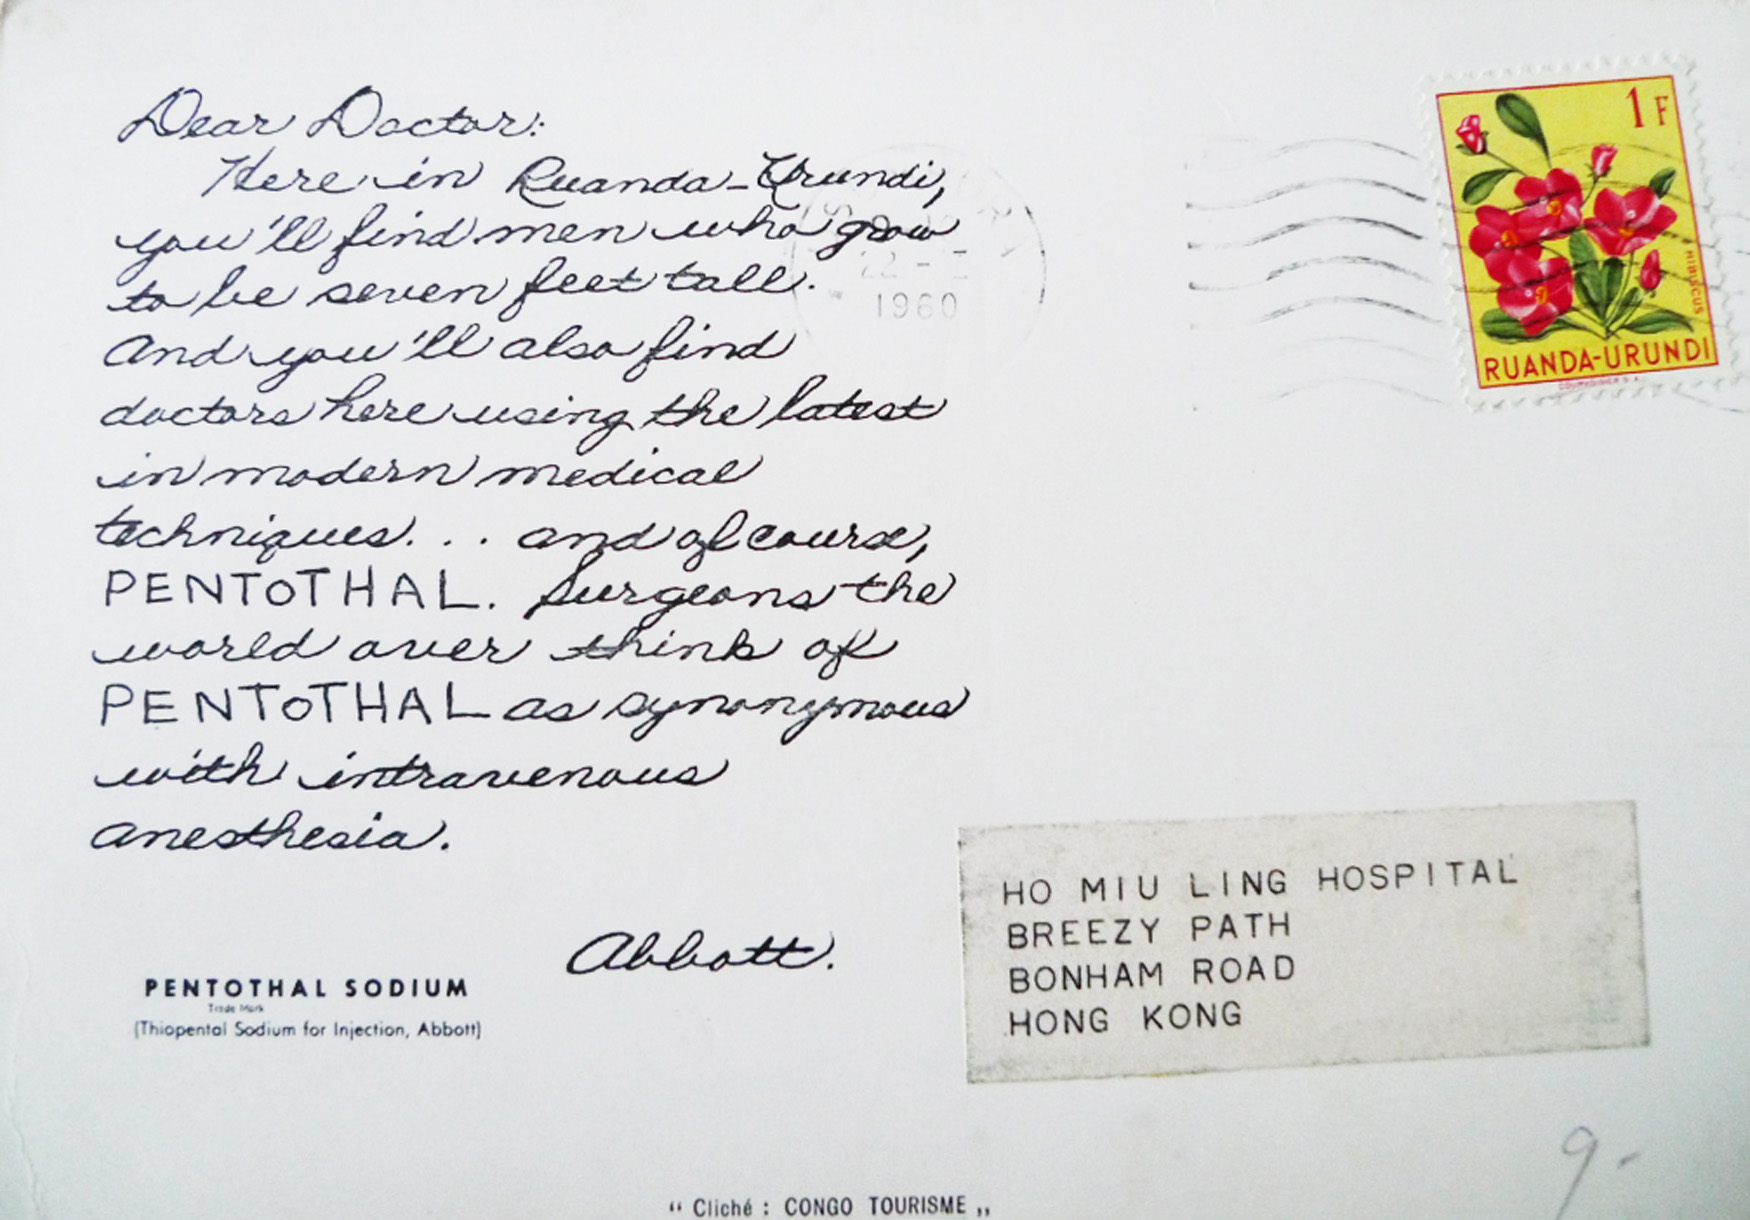 Dear Doctor:
Here in Ruanda-Urundi,
you'll find men who grow
to be seven feet tall.
And you'll also find
doctors here using the latest
in modern medical
techniques... and of course,
PENTOTHAL. Surgeons the
world over think of
PENTOTHAL as synonymous
with intravenous
anesthesia.
Abbott.
PENTOTHAL SODIUM
Trade Mark
(Thiopental Sodium for Injection, Abbott)
1960
1 F
HIBISCUS
RUANDA-URUNDI
HO MIU LING HOSPITAL
BREEZY PATH
BONHAM ROAD
HONG KONG
9-
" Cliché : CONGO TOURISME „